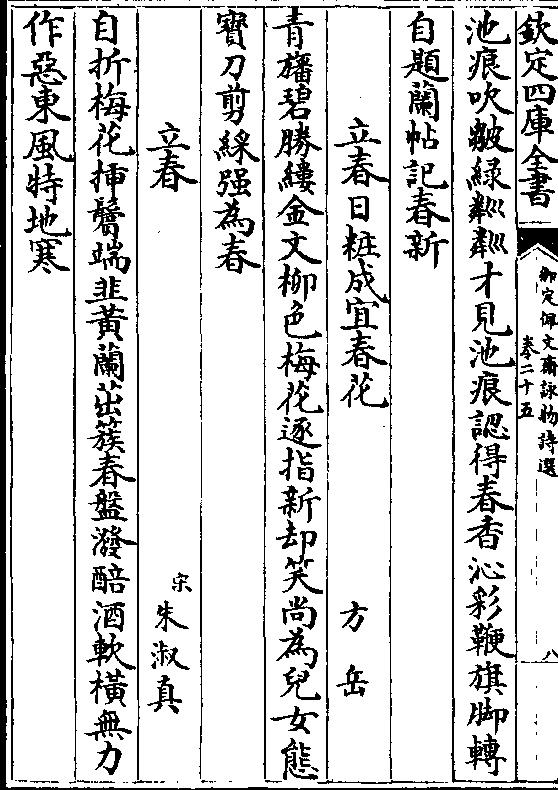 欽定四庫全書
御定佩文齋詠物詩選
卷二十五
八
池痕吹皺緑粼粼才見池痕認得春香沁彩鞭旗脚轉
自題蘭帖記春新
立春日粧成宜春花 方岳
青旛碧勝縷金文柳色梅花逐指新却笑尚為兒女態
寳刀剪綵强為春
立春 宋朱淑真
自折梅花揷鬢端韭黄蘭茁簇春盤潑醅酒軟橫無力
作惡東風特地寒